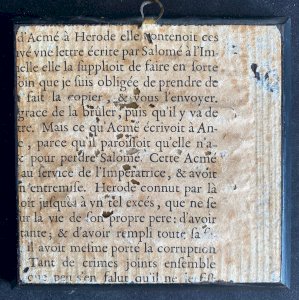 d'Acmé à Herode elle contenoit ces
vé vne lettre écrite par Salomé à l'Im
elle elle la supplioit de faire en sorte
oin que je suis obligée de prendre de
fait la copier, & vous l'envoyer.
grace de la brûler, puis qu'il y va de
tre. Mais ce qu'Acmé écrivoit à An-
, parce qu'il paroissoit qu'elle n'a
pour perdre Salomé. Cette Acmé
au service de l'Imperatrice, & avoit
n'entremise. Herode connut par là
oit jusques à vn tel excés, que ne se
ur la vie de son propre pere; d'avoir
tante; & d'avoir rempli toute sa
il avoit mesme porté la corruption
Tant de crimes joints ensemble
que n'en salut qu'il ne je